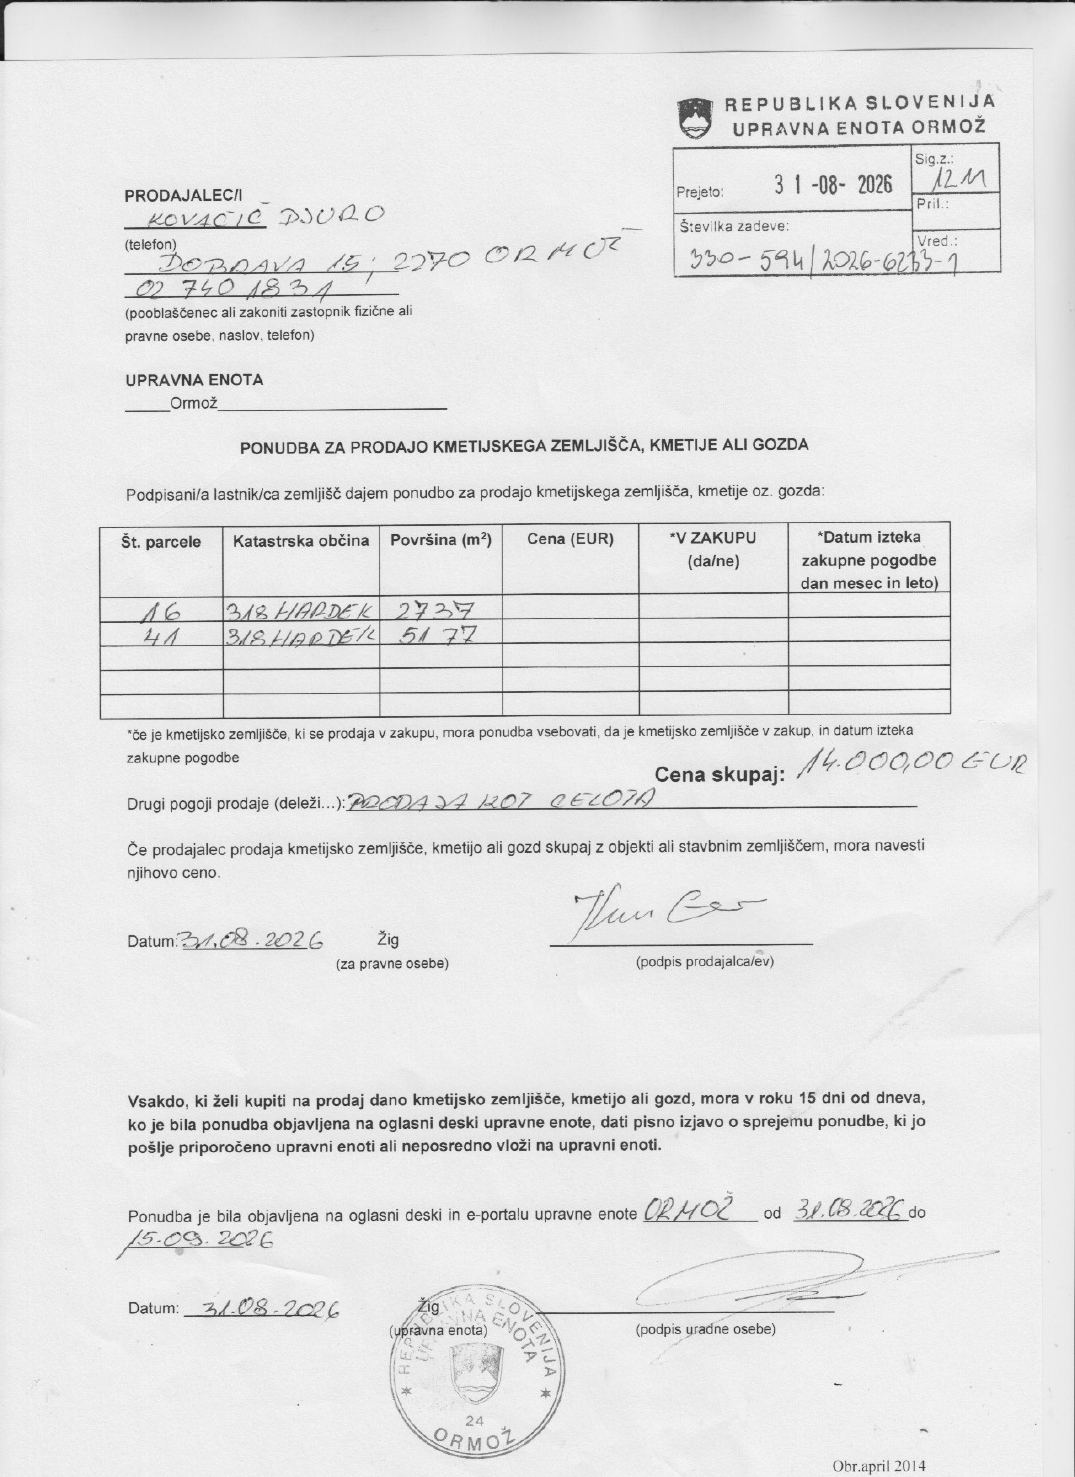 REPUBLIKA SLOVENIJA
UPRAVNA ENOTA ORMOŽ
Prejeto: 31-08-2026
Sig.z.: 1211
Pril.:
Številka zadeve:
Vred.:
330-594/2026-6233-1
PRODAJALEC/I
KOVAČIČ DJURO
(telefon)
DOBRAVA 15, 2270 ORMOŽ
02 740 1831
(pooblaščenec ali zakoniti zastopnik fizične ali
pravne osebe, naslov, telefon)
UPRAVNA ENOTA
Ormož
PONUDBA ZA PRODAJO KMETIJSKEGA ZEMLJIŠČA, KMETIJE ALI GOZDA
Podpisani/a lastnik/ca zemljišč dajem ponudbo za prodajo kmetijskega zemljišča, kmetije oz. gozda:
Št. parcele Katastrska občina Površina (m²) Cena (EUR) *V ZAKUPU (da/ne) *Datum izteka zakupne pogodbe dan mesec in leto)
16 318 HARDEK 2737
41 318 HARDEK 5177
*če je kmetijsko zemljišče, ki se prodaja v zakupu, mora ponudba vsebovati, da je kmetijsko zemljišče v zakup, in datum izteka
zakupne pogodbe
Cena skupaj: 14.000,00 EUR
Drugi pogoji prodaje (deleži...): PRODAJA KOT CELOTA
Če prodajalec prodaja kmetijsko zemljišče, kmetijo ali gozd skupaj z objekti ali stavbnim zemljiščem, mora navesti
njihovo ceno.
Datum: 31.08.2026 Žig
(za pravne osebe) (podpis prodajalca/ev)
Vsakdo, ki želi kupiti na prodaj dano kmetijsko zemljišče, kmetijo ali gozd, mora v roku 15 dni od dneva,
ko je bila ponudba objavljena na oglasni deski upravne enote, dati pisno izjavo o sprejemu ponudbe, ki jo
pošlje priporočeno upravni enoti ali neposredno vloži na upravni enoti.
Ponudba je bila objavljena na oglasni deski in e-portalu upravne enote ORMOŽ od 31.08.2026 do
15.09.2026
Datum: 31.08.2026 Žig
(upravna enota) (podpis uradne osebe)
REPUBLIKA SLOVENIJA
UPRAVNA ENOTA
24
ORMOŽ
Obr.april 2014